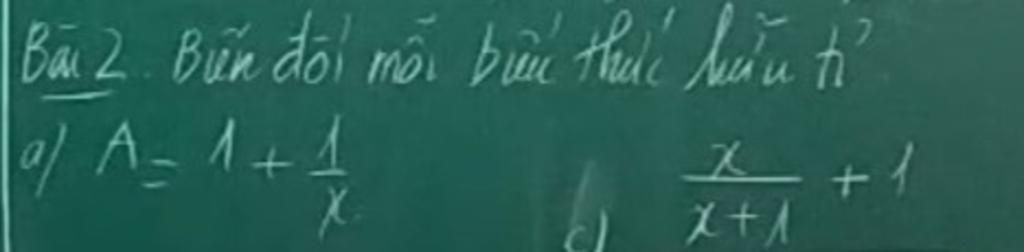 Bài 2. Biến đổi mỗi biểu thức hữu tỉ
a) A = 1 + 1/x
c) x/(x+1) + 1